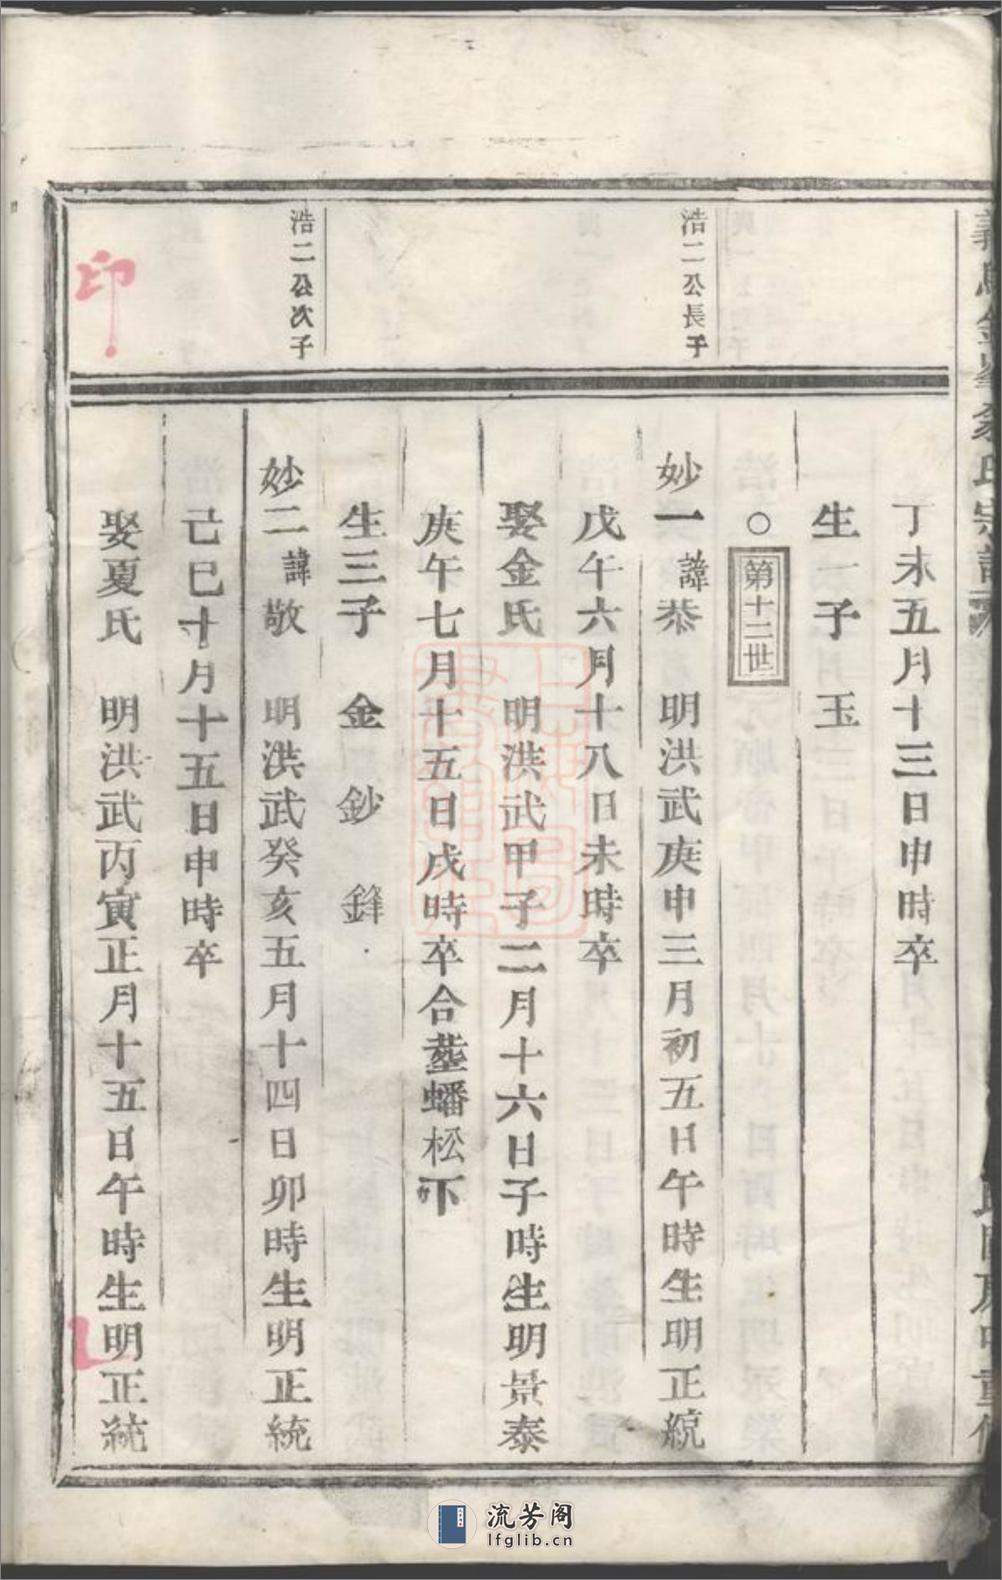 丁未五月十三日申時卒
生一子 玉
○第十二世
浩二公長子
妙一 諱恭 明洪武庚申三月初五日午時生明正統
戊午六月十八日未時卒
娶金氏 明洪武甲子二月十六日子時生明景泰
庚午七月十五日戌時卒合塟蟠松下
生三子 金 鈔 鋒
浩二公次子
妙二 諱敬 明洪武癸亥五月十四日卯時生明正統
己巳十月十五日申時卒
娶夏氏 明洪武丙寅正月十五日午時生明正統
印
流芳阁
lfglib.cn